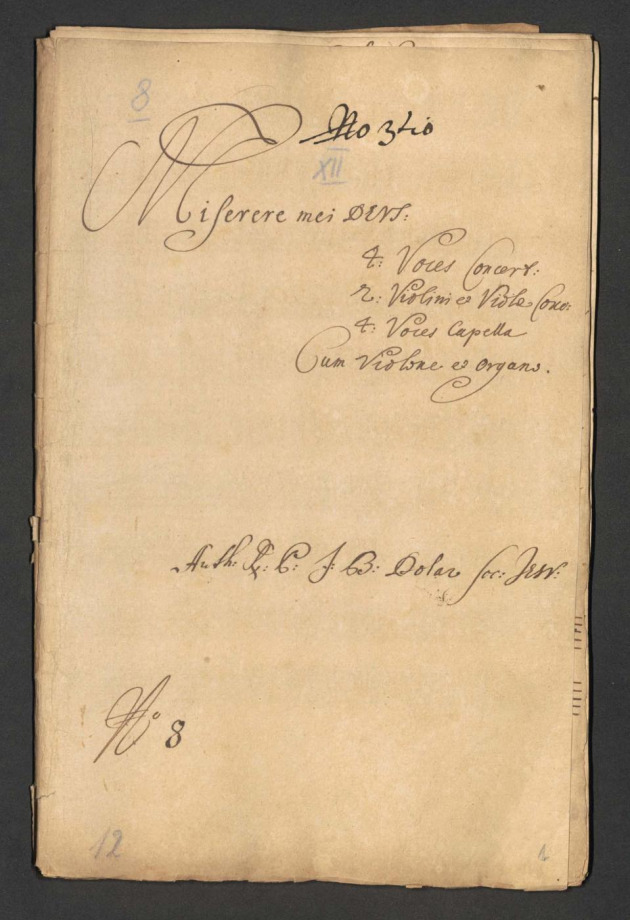 8
No 340
XII
Miserere mei DEUS:
4: Voces Concert:
2: Violini et Viole Conc:
4: Voces Capella
Cum Violone et Organo.
Auth: R: P: J: B: Dolar Soc: JESU:
No 8
12
1